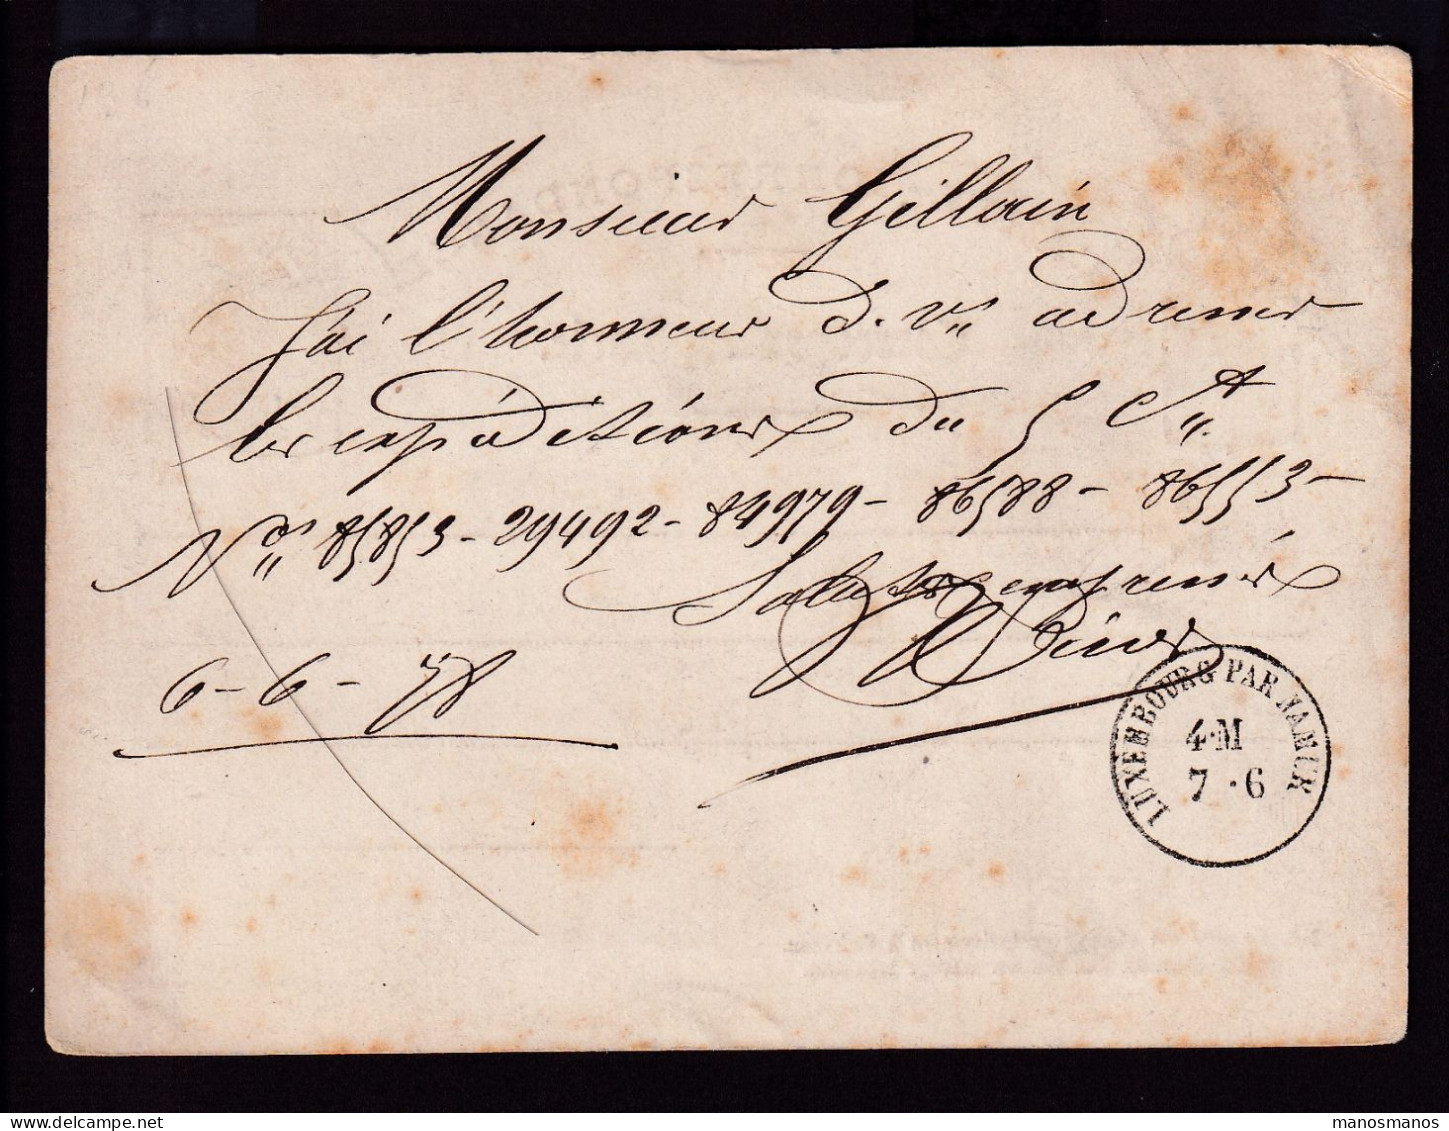 Monsieur Gillain
J'ai l'honneur d. vs adresser
les expéditions du 5 Ct
Nos 85853 - 29492 - 84979 - 86588 - 86553 -
Salut empressé
6 - 6 - 78
LUXEMBOURG PAR NAMUR
4·M
7 ·6
manosmanos